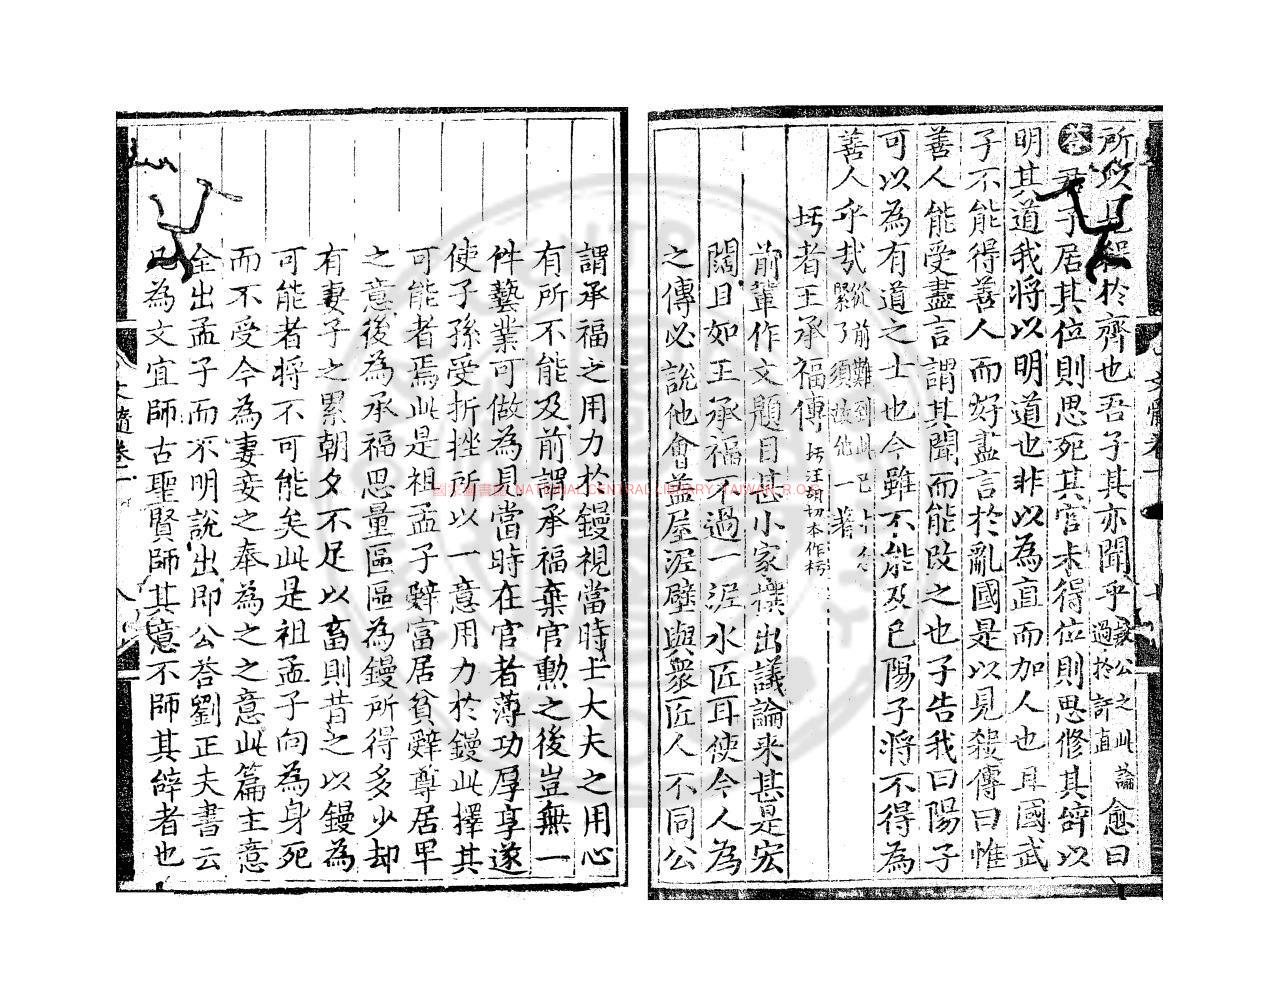 所以見殺於齊也吾子其亦聞乎 或公之此論過於訐直 愈曰
君子居其位則思死其官未得位則思修其辭以
明其道我將以明道也非以為直而加人也且國武
子不能得善人而好盡言於亂國是以見殺傳曰惟
善人能受盡言謂其聞而能改之也子告我曰陽子
可以為有道之士也今雖不能及已陽子將不得為
善人乎哉 從前難到此已緊了須放他一著
圬者王承福傳 圬汪胡切本作杇
前輩作文題目甚小家撰出議論來甚是宏
闊且如王承福不過一泥水匠耳使今人為
之傳必說他會蓋屋泥壁與衆匠人不同公
謂承福之用力於鏝視當時士大夫之用心
有所不能及前謂承福棄官勲之後豈無一
件藝業可做為見當時在官者薄功厚享遂
使子孫受折挫所以一意用力於鏝此擇其
可能者焉此是祖孟子辭富居貧辭尊居卑
之意後為承福思量區區為鏝所得多少却
有妻子之累朝夕不足以畜則昔之以鏝為
可能者將不可能矣此是祖孟子向為身死
而不受今為妻妾之奉為之之意此篇主意
全出孟子而不明說出即公荅劉正夫書云
凡為文宜師古聖賢師其意不師其辭者也
文髓卷一